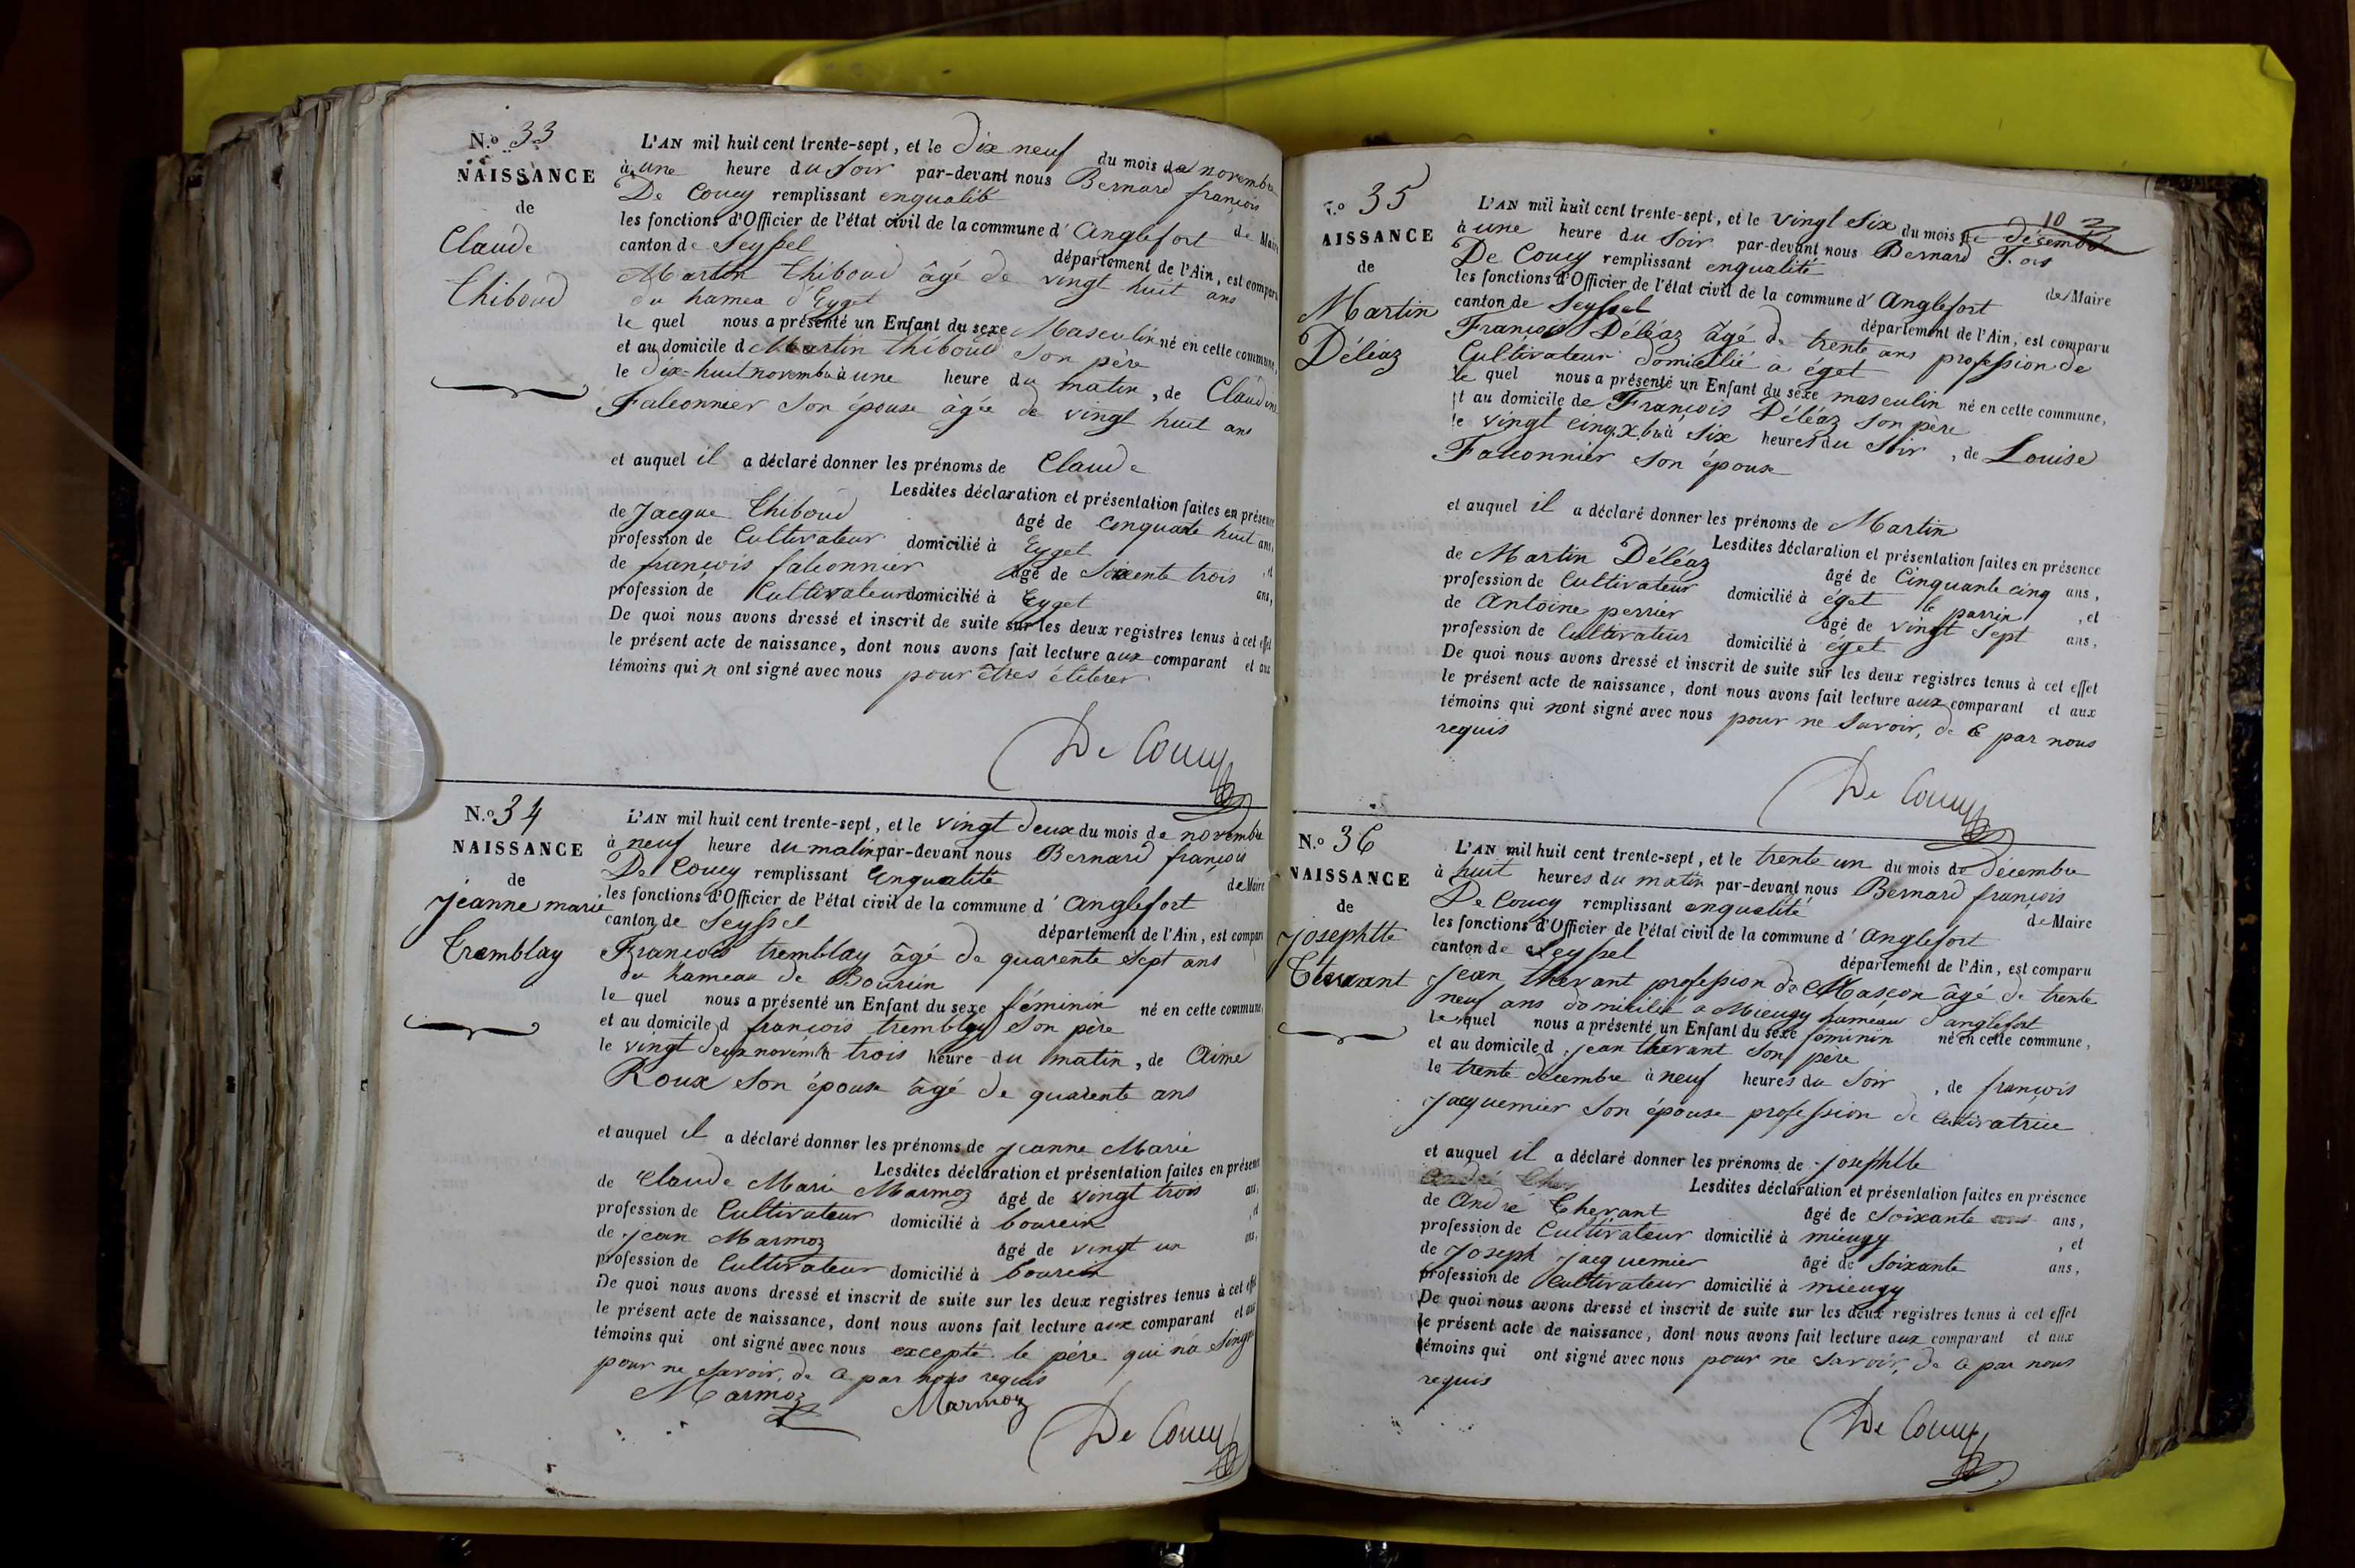 N.o 33
NAISSANCE
de
Claude
Thiboud
L'AN mil huit cent trente-sept, et le dix neuf du mois de novembre
à une heure du soir par-devant nous Bernard françois
De Coucy remplissant enqualité de Maire
les fonctions d'Officier de l'état civil de la commune d'Anglefort
canton de Seyssel département de l'Ain, est comparu
Martin Thiboud âgé de vingt huit ans
du hamea d'Eyget
le quel nous a présenté un Enfant du sexe Masculin né en cette commune,
et au domicile d Martin thiboud son père
le dix-huit novembre à une heure du matin, de Claudine
Falconnier son épouse âgée de vingt huit ans
et auquel il a déclaré donner les prénoms de Claude
Lesdites déclaration et présentation faites en présence
de Jacque Thiboud âgé de cinquante huit ans,
profession de Cultivateur domicilié à Eyget, et
de françois falconnier âgé de soixente trois ans,
profession de Cultivateur domicilié à Eyget
De quoi nous avons dressé et inscrit de suite sur les deux registres tenus à cet effet
le présent acte de naissance, dont nous avons fait lecture aux comparant et aux
témoins qui n ont signé avec nous pour êtres éliterer
De Coucy
N.o 34
NAISSANCE
de
Jeanne marie
Tremblay
L'AN mil huit cent trente-sept, et le vingt deux du mois de novembre
à neuf heure du matin par-devant nous Bernard françois
De Coucy remplissant enqualité de Maire
les fonctions d'Officier de l'état civil de la commune d'Anglefort
canton de Seyssel département de l'Ain, est comparu
François tremblay âgé de quarente sept ans
du hameau de Bourcin
le quel nous a présenté un Enfant du sexe féminin né en cette commune,
et au domicile d françois tremblay son père
le vingt deux novemb trois heure du matin, de Aime
Roux son épouse âgé de quarente ans
et auquel il a déclaré donner les prénoms de Jeanne Marie
Lesdites déclaration et présentation faites en présence
de Claude Marie Marmoz âgé de vingt trois ans,
profession de Cultivateur domicilié à bourcin, et
de jean Marmoz âgé de vingt un ans,
profession de Cultivateur domicilié à bourcin
De quoi nous avons dressé et inscrit de suite sur les deux registres tenus à cet effet
le présent acte de naissance, dont nous avons fait lecture aux comparant et aux
témoins qui ont signé avec nous excepté le père qui n'a singné
pour ne savoir, de ce par nous requis
Marmoz Marmoz
De Coucy
N.o 35
AISSANCE
de
Martin
Déléaz
10
L'AN mil huit cent trente-sept, et le vingt six du mois de décembre
à une heure du soir par-devant nous Bernard F. ois
De Coucy remplissant enqualité de Maire
les fonctions d'Officier de l'état civil de la commune d'Anglefort
canton de Seyssel département de l'Ain, est comparu
François Déléaz âgé de trente ans profession de
Cultivateur domicilié à éget
le quel nous a présenté un Enfant du sexe masculin né en cette commune,
et au domicile de François Déléaz son père
le vingt cinq Xbre à six heures du soir, de Louise
Falconnier son épouse
et auquel il a déclaré donner les prénoms de Martin
Lesdites déclaration et présentation faites en présence
de Martin Déléaz âgé de Cinquante cinq ans,
profession de Cultivateur domicilié à éget le parrin, et
de Antoine perrier âgé de vingt sept ans,
profession de Cultivateur domicilié à éget
De quoi nous avons dressé et inscrit de suite sur les deux registres tenus à cet effet
le présent acte de naissance, dont nous avons fait lecture aux comparant et aux
témoins qui nont signé avec nous pour ne savoir, de ce par nous
requis
De Coucy
N.o 36
NAISSANCE
de
Josephtte
Thevant
L'AN mil huit cent trente-sept, et le trente un du mois de Décembre
à huit heures du matin par-devant nous Bernard françois
De Coucy remplissant enqualité de Maire
les fonctions d'Officier de l'état civil de la commune d'Anglefort
canton de Seyssel département de l'Ain, est comparu
jean thevant profession de Masçon âgé de trente
neuf ans domicilié a Mieugy hameau d'anglefort
le quel nous a présenté un Enfant du sexe féminin né en cette commune,
et au domicile d jean thevant son père
le trente décembre à neuf heures du soir, de françois
jacquemier son épouse profession de cultivatrice
et auquel il a déclaré donner les prénoms de josephtte
Lesdites déclaration et présentation faites en présence
de André Thevant âgé de soixante ans,
profession de Cultivateur domicilié à mieugy, et
de Joseph jacquemier âgé de soixante ans,
profession de Cultivateur domicilié à mieugy
De quoi nous avons dressé et inscrit de suite sur les deux registres tenus à cet effet
le présent acte de naissance, dont nous avons fait lecture aux comparant et aux
témoins qui ont signé avec nous pour ne savoir, de ce par nous
requis
De Coucy